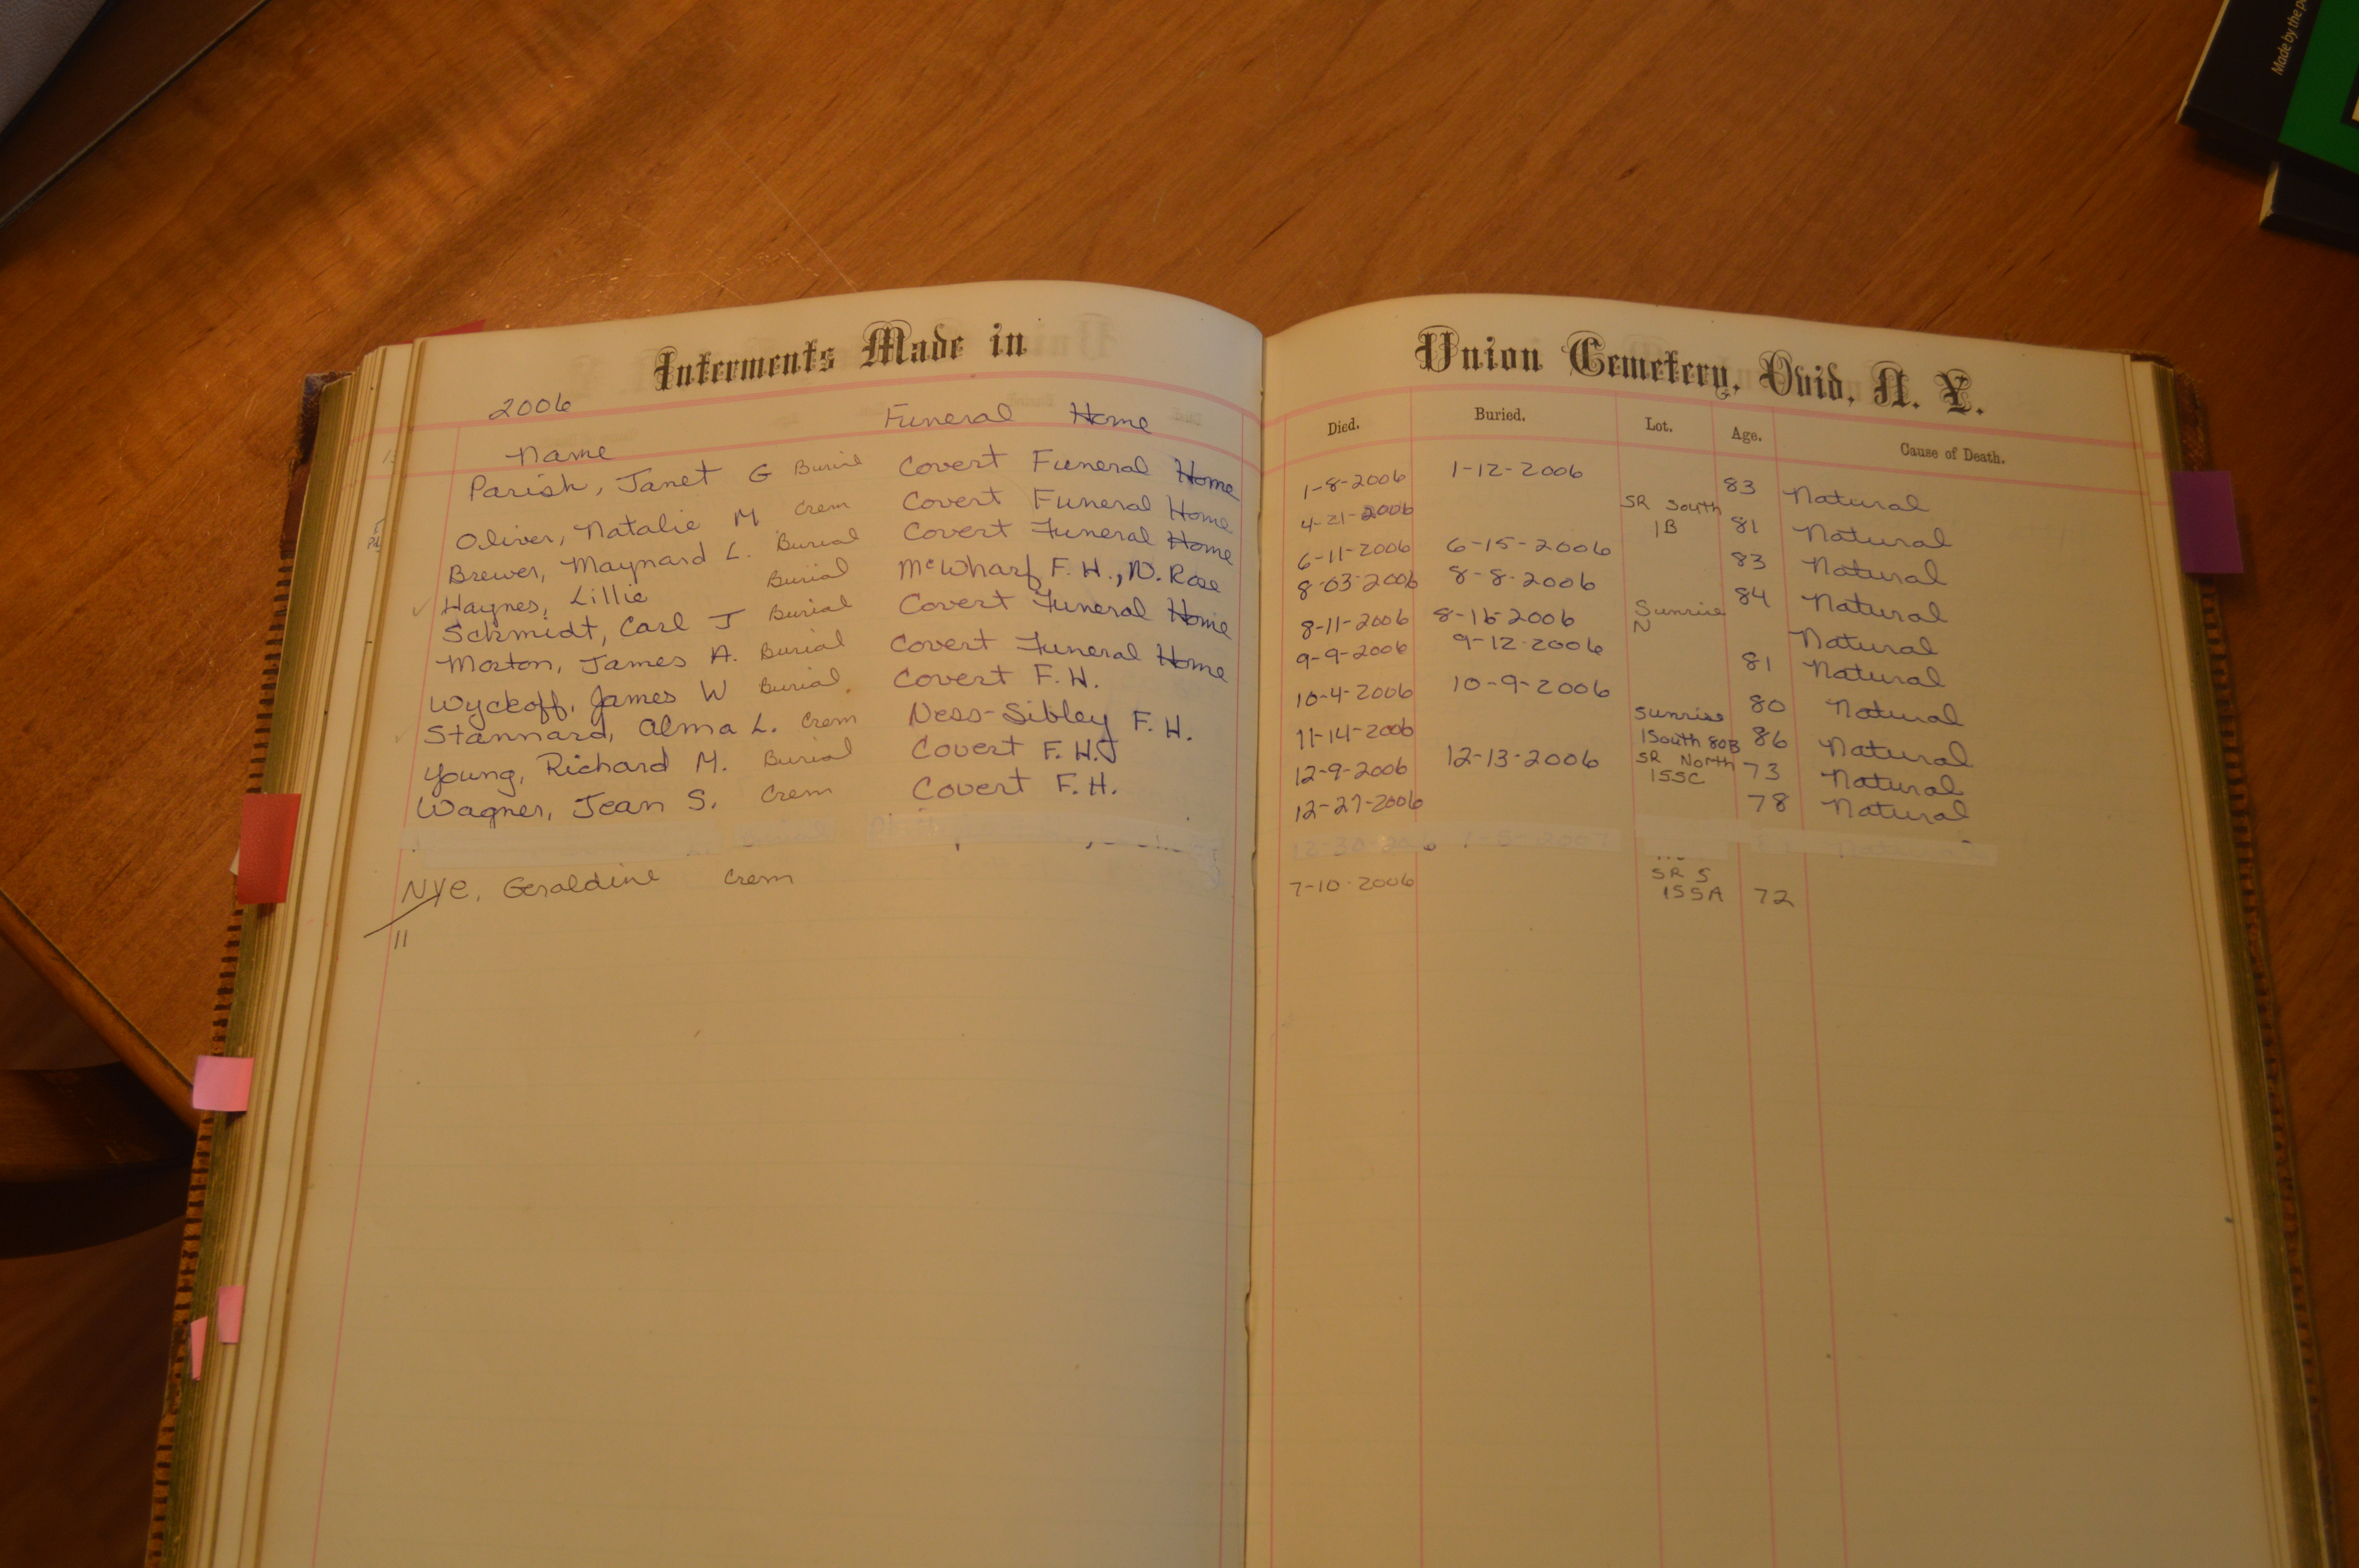 Interments Made in Union Cemetery, Ovid, N. Y.
2006
Name Funeral Home Died. Buried. Lot. Age. Cause of Death.
Parish, Janet G Burial Covert Funeral Home 1-8-2006 1-12-2006 83 Natural
Oliver, Natalie M Crem Covert Funeral Home 4-21-2006 SR South 1B 81 Natural
Brewer, Maynard L. Burial Covert Funeral Home 6-11-2006 6-15-2006 83 Natural
Haynes, Lillie Burial McWharf F. H., N. Rose 8-03-2006 8-8-2006 84 Natural
Schmidt, Carl J Burial Covert Funeral Home 8-11-2006 8-16-2006 Sunrise N Natural
Morton, James A. Burial Covert Funeral Home 9-9-2006 9-12-2006 81 Natural
Wyckoff, James W Burial Covert F.H. 10-4-2006 10-9-2006 80 Natural
Stannard, Alma L. Crem Ness-Sibley F. H. 11-14-2006 Sunrise 1South 80B 86 Natural
Young, Richard M. Burial Covert F.H. 12-9-2006 12-13-2006 SR North 155C 73 Natural
Wagner, Jean S. Crem Covert F.H. 12-27-2006 78 Natural
Nye, Geraldine Crem 7-10-2006 SR S 155A 72
11
Made by the